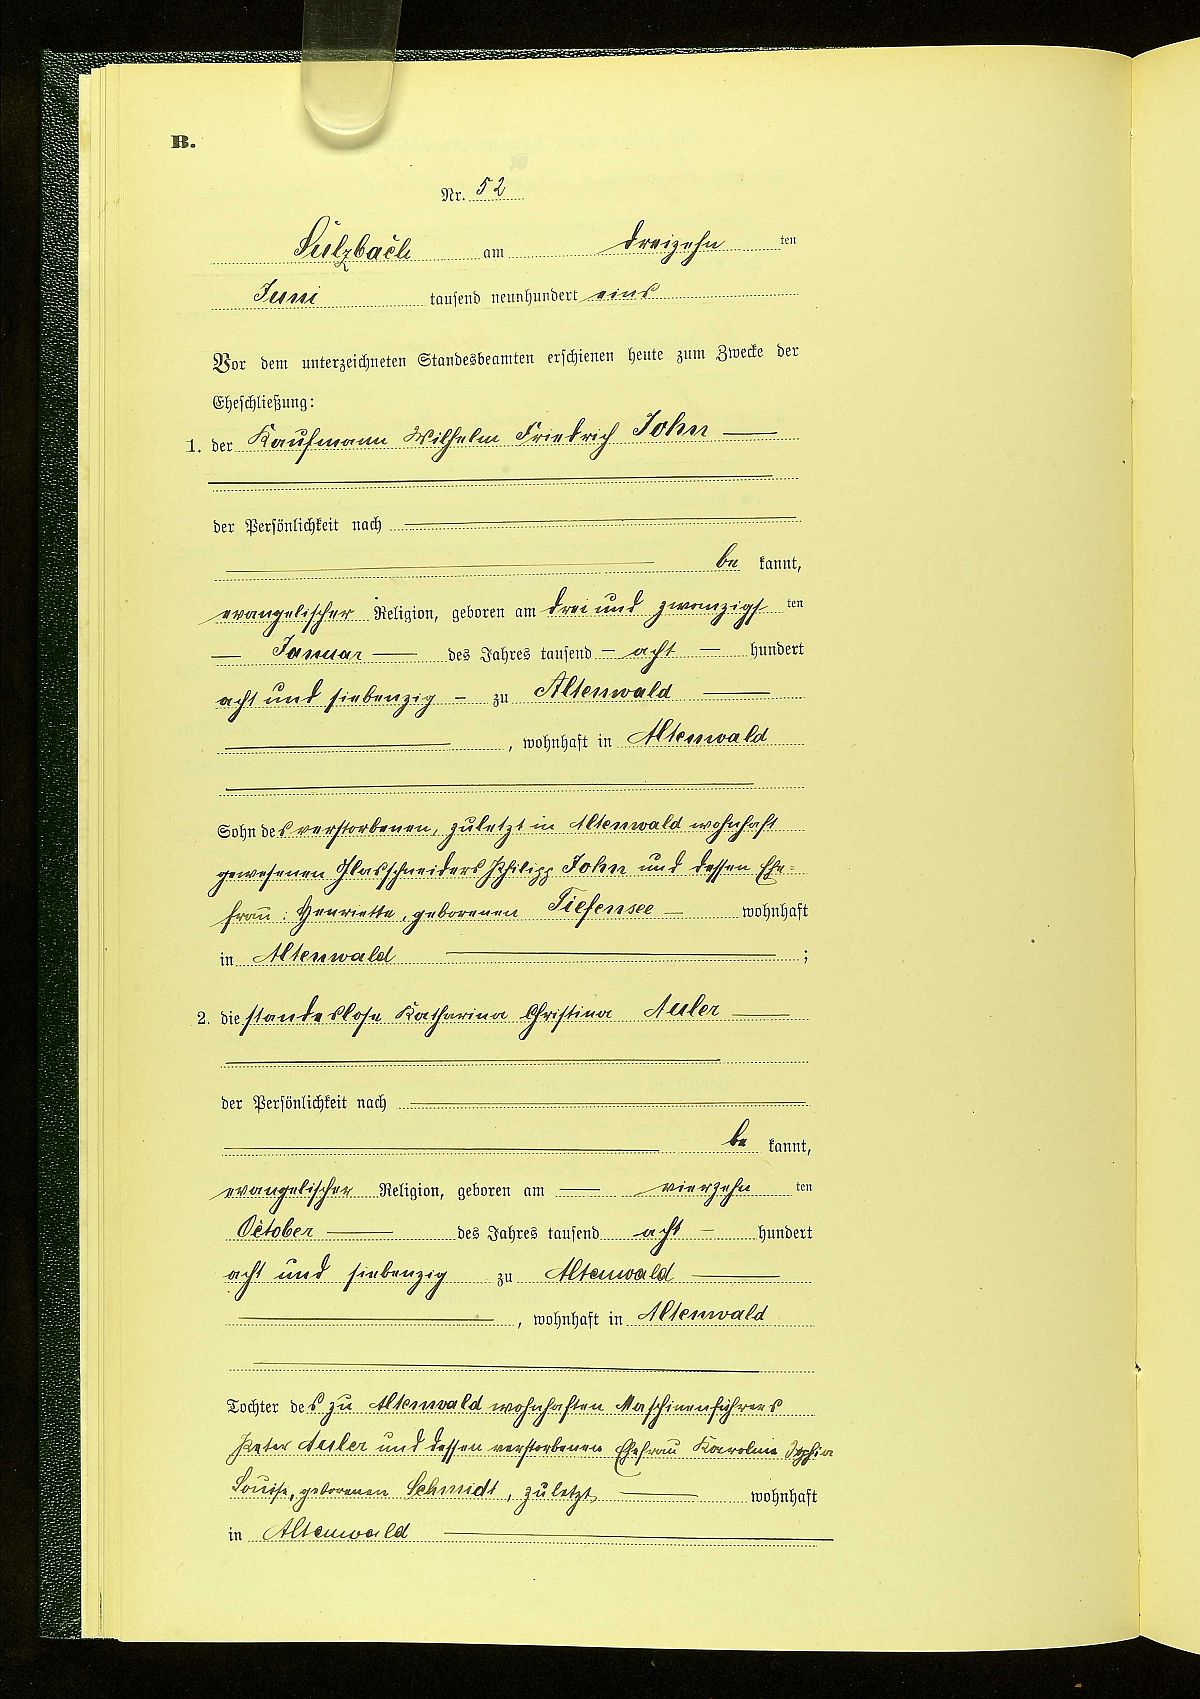 B.
Nr. 52
Sulzbach am dreizehn ten
Juni tausend neunhundert eins
Vor dem unterzeichneten Standesbeamten erschienen heute zum Zwecke der
Eheschließung:
1. der Kaufmann Wilhelm Friedrich John
der Persönlichkeit nach
be kannt,
evangelischer Religion, geboren am drei und zwanzigst ten
Januar des Jahres tausend acht hundert
acht und siebenzig zu Altenwald
, wohnhaft in Altenwald
Sohn des verstorbenen, zuletzt in Altenwald wohnhaft
gewesenen Glasschneiders Philipp John und dessen Ehe-
frau: Henriette, geborenen Tiefensee wohnhaft
in Altenwald ;
2. die standeslose Katharina Christina Auler
der Persönlichkeit nach
be kannt,
evangelischer Religion, geboren am vierzehn ten
October des Jahres tausend acht hundert
acht und siebenzig zu Altenwald
, wohnhaft in Altenwald
Tochter des zu Altenwald wohnhaften Maschinenführers
Peter Auler und dessen verstorbenen Ehefrau Karoline Sophia
Louise, geborenen Schmidt, zuletzt wohnhaft
in Altenwald